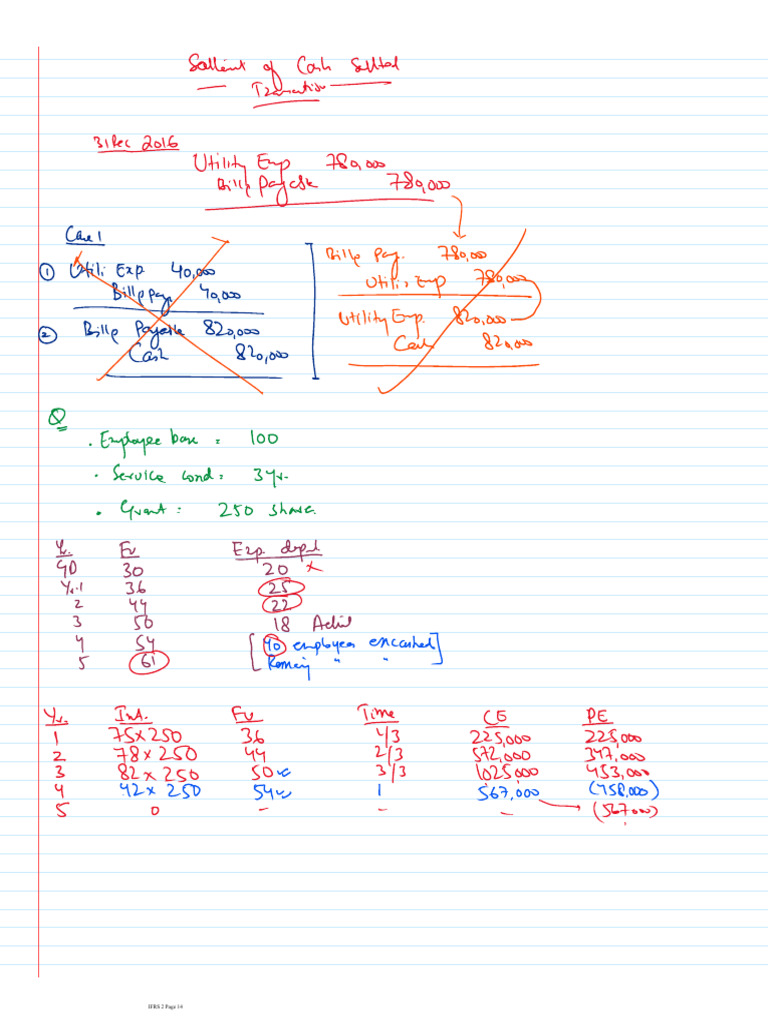 Settlement of Cash Settled
Transaction
31 Dec 2016
Utility Exp 780,000
Bills Payable 780,000
Case 1
① Utili. Exp. 40,000
Bills Pay. 40,000
② Bills Payable 820,000
Cash 820,000
Bills Pay. 780,000
Utili. Exp 780,000
Utility Exp. 820,000
Cash 820,000
Q
. Employee base = 100
. Service Cond: 3 yr.
. Grant: 250 share.
Yr. FV Exp. depart
GD 30 20 x
Yr-1 36 25
2 44 22
3 50 18 Actual
4 54 [ 40 employees encashed ]
5 61 [ Remaing " " ]
Yr. Inst. FV Time CE PE
1 75 x 250 36 1/3 225,000 225,000
2 78 x 250 44 2/3 572,000 347,000
3 82 x 250 50 3/3 1025,000 453,000
4 42 x 250 54 1 567,000 (458,000)
5 0 - - - (567,000)
IFRS 2 Page 14